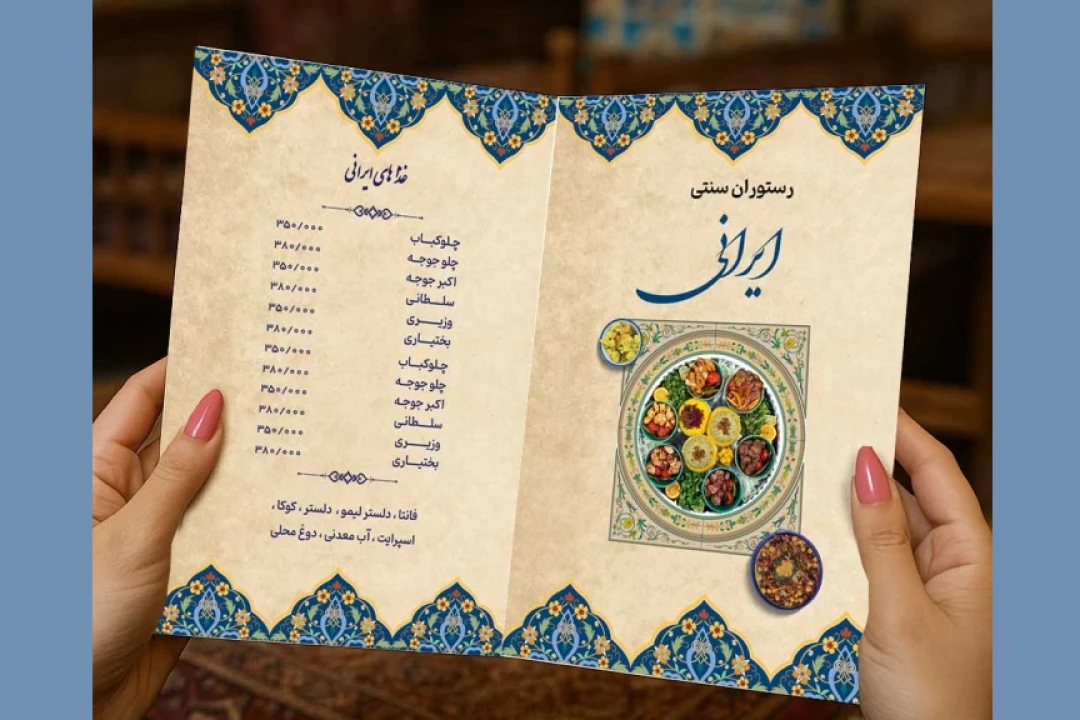 رستوران سنتی
ایرانی
غذا های ایرانی
چلوکباب ۳۵۰/۰۰۰
چلو جوجه ۳۸۰/۰۰۰
اکبر جوجه ۳۵۰/۰۰۰
سلطانی ۳۸۰/۰۰۰
وزیری ۳۵۰/۰۰۰
بختیاری ۳۸۰/۰۰۰
چلوکباب ۳۵۰/۰۰۰
چلو جوجه ۳۸۰/۰۰۰
اکبر جوجه ۳۵۰/۰۰۰
سلطانی ۳۸۰/۰۰۰
وزیری ۳۵۰/۰۰۰
بختیاری ۳۸۰/۰۰۰
فانتا ، دلستر لیمو ، دلستر ، کوکا ،
اسپرایت ، آب معدنی ، دوغ محلی